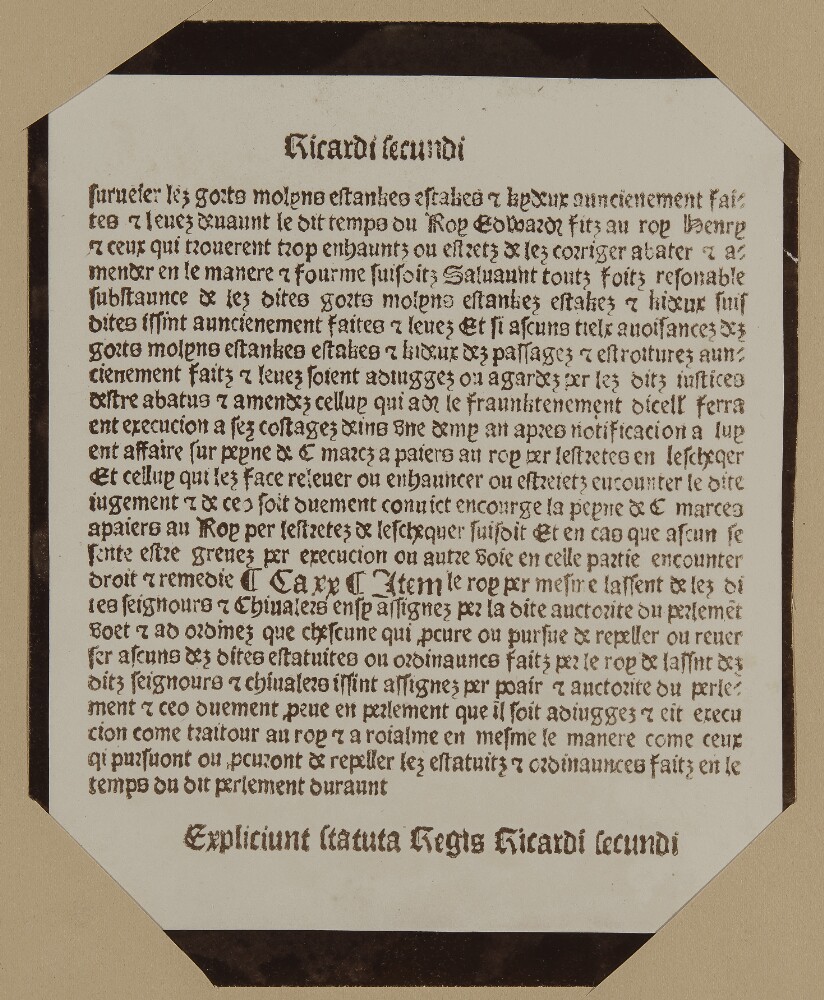 Ricardi secundi
surueier lez gorts molyns estankes estakes ⁊ kydeux auncienement fai⸗
tes ⁊ leuez deuaunt le dit temps du Roy Edwardz fitz au roy Henry
⁊ ceux qui trouerent trop enhauntz ou estretz de lez corriger abater ⁊ a⸗
mender en le manere ⁊ fourme suisditz Sauaunt toutz foitz resonable
substaunce de lez dites gorts molyns estankez estakez ⁊ kideux suis
dites issint auncienement faites ⁊ leuez Et si ascuns tielx anoisancez dez
gorts molyns estankes estakes ⁊ kideux dez passagez ⁊ estroiturez aun⸗
cienement faitz ⁊ leuez soient adiuggez ou agardez per lez ditz iustices
destre abatus ⁊ amendez celluy qui adz le fraunktenement dicell ferra
ent execucion a sez costagez deins vne demy an apres notificacion a luy
ent affaire sur peyne de C marcz a paiers au roy per lestretes en lescheqer
Et celluy qui lez face releuer ou enhauncer ou estreietz encounter le dite
iugement ⁊ de ceo soit duement conuict encourge la peyne de C marces
apaiers au Roy per lestretez de lescheqer suisdit Et en cas que ascun se
sente estre greuez per execucion ou autre voie en celle partie encounter
droit ⁊ remedie ¶ Ca xx ¶ Item le roy per mesme lassent de lez di
tes seignours ⁊ Chiualers ensy assignez per la dite auctorite du perlemēt
voet ⁊ ad ordinez que chescune qui ꝓcure ou pursue de repeller ou reuer
ser ascuns dez dites estatuites ou ordinaunces faitz per le roy de lassnt dez
ditz seignours ⁊ chiualers issint assignez per poair ⁊ auctorite du perle⸗
ment ⁊ ceo duement ꝓeue en perlement que il soit adiuggez ⁊ eit execu
cion come traitour au roy ⁊ a roialme en mesme le manere come ceux
qi pursuont ou ꝓcuront de repeller lez estatuitz ⁊ ordinaunces faitz en le
temps du dit perlement duraunt
Expliciunt statuta Regis Ricardi secundi